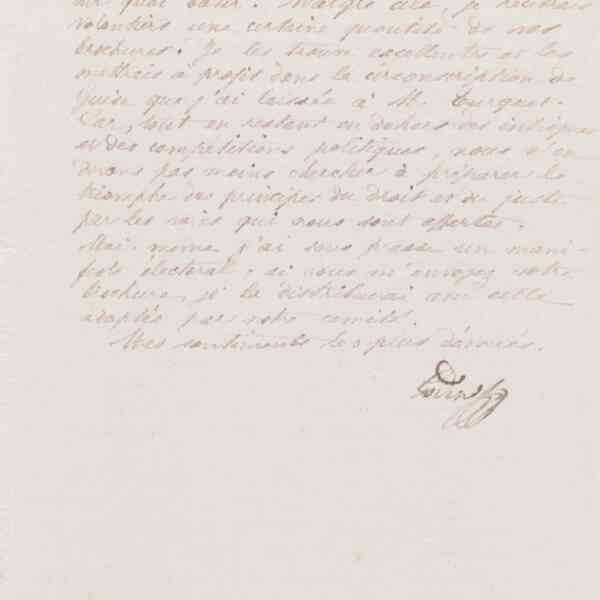 sur quoi bâtir. Malgré cela, je recevrais
volontiers une certaine quantité de vos
brochures. Je les trouve excellentes et les
mettrais à profit dans la circonscription de
Guise que j'ai laissée à M. Turquet.
Car, tout en restant en dehors des intrigues
et des compétitions politiques, nous n'en
devons pas moins chercher à préparer le
triomphe des principes du droit et du juste
par les voies qui nous sont offertes.
Moi-même j'ai sous presse un mani-
feste électoral. Si vous m'envoyez votre
brochure, je la distribuerai avec celle
adoptée par notre comité.
Mes sentiments les plus dévoués.
Godin